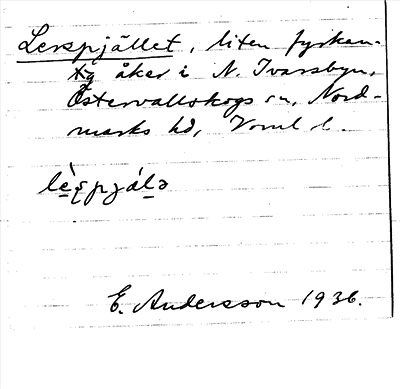 Lerspjället, liten fyrkan-
tig åker i N. Ivarsbyn,
Östervallskogs sn, Nord-
marks hd, Vrml l.
lèspjálə
E. Andersson 1936.